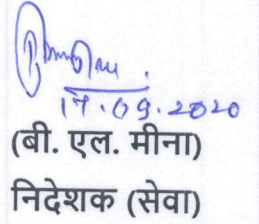 17.09.2020
(बी. एल. मीना)
निदेशक (सेवा)